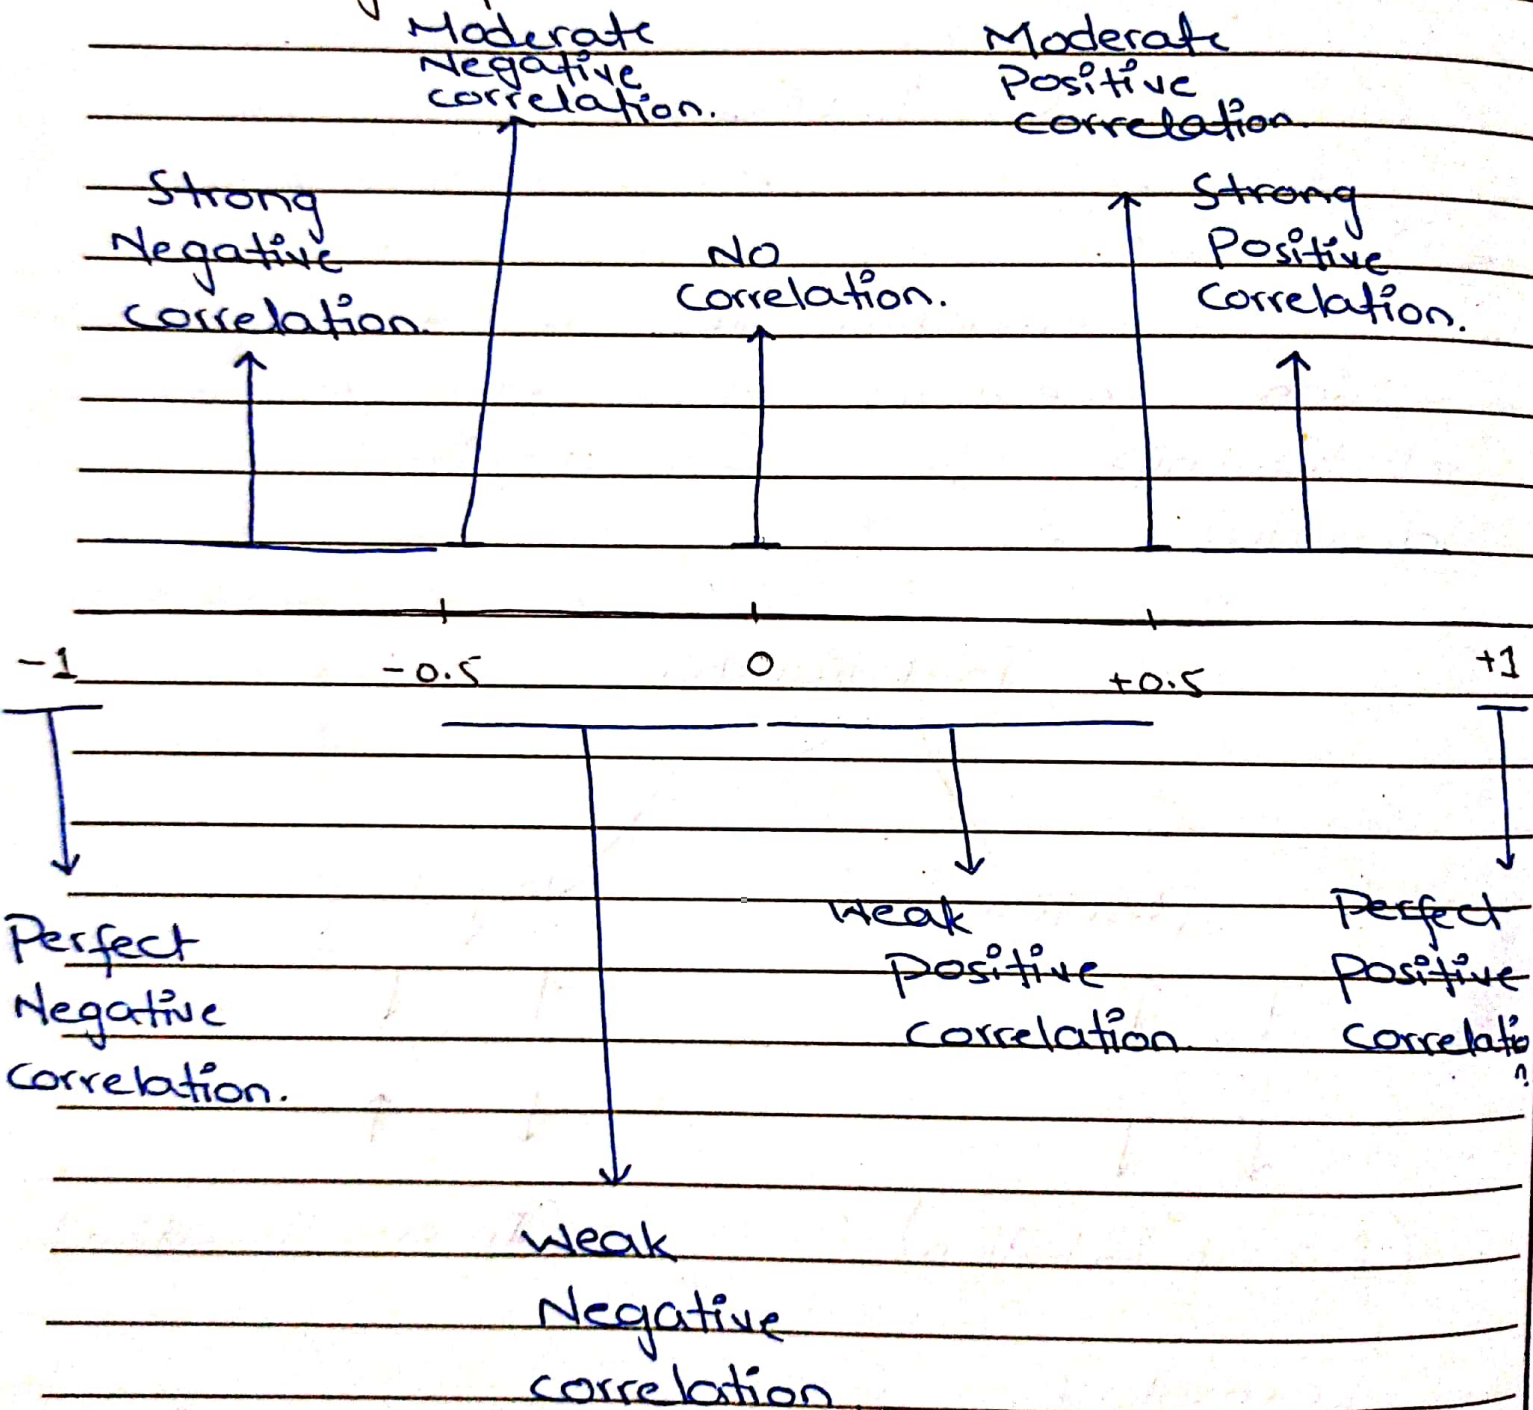 Moderate
Negative
correlation.
Moderate
Positive
correlation.
Strong
Negative
correlation.
NO
correlation.
Strong
Positive
correlation.
-1
-0.5
0
+0.5
+1
Perfect
Negative
correlation.
weak
positive
correlation
perfect
positive
correlatio
n
weak
Negative
correlation